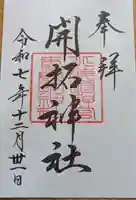 奉拝
開拓神社
令和七年十二月卅一日